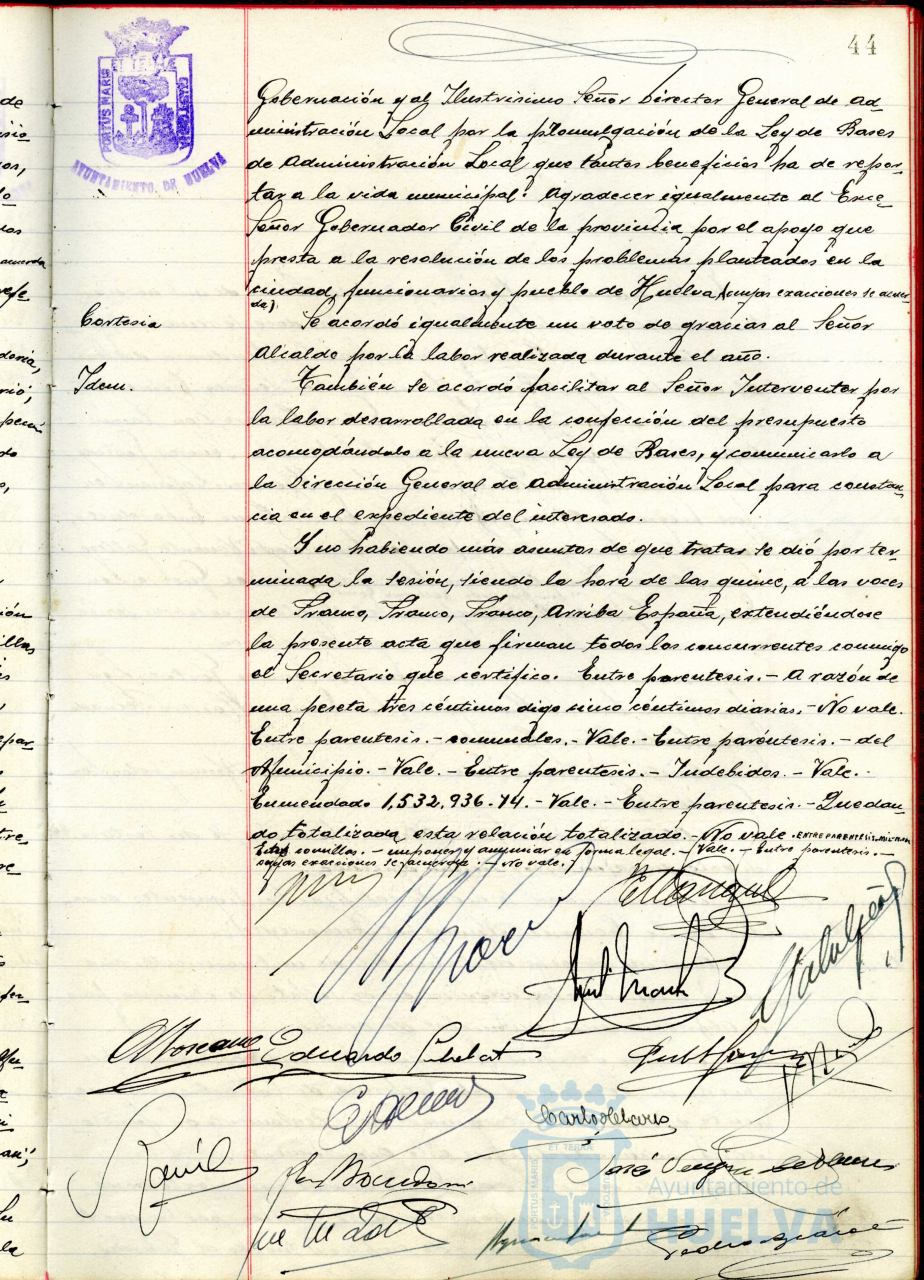 44
PORTUS MARIS
ET TERRAE
AYUNTAMIENTO. DE HUELVA
Gobernación y al Ilustrisimo Señor Director General de Ad-
ministración Local por la promulgación de la Ley de Bases
de Administración Local que tantos beneficios ha de repor-
tar a la vida municipal. Agradecer igualmente al Exc
Señor Gobernador Civil de la provincia por el apoyo que
presta a la resolución de los problemas planteados en la
ciudad, funcionarios y pueblo de Huelva (cuyas exacciones se acuer
da)
Cortesia
Se acordó igualmente un voto de gracias al Señor
Alcalde por la labor realizada durante el año.
Idem.
También se acordó facilitar al Señor Interventor por
la labor desarrollada en la confección del presupuesto
acomodándolo a la nueva Ley de Bases, y comunicarlo a
la Dirección General de Administración Local para constan-
cia en el expediente del interesado.
Y no habiendo más asuntos de que tratar se dió por ter-
minada la sesión, siendo la hora de las quince, a las voces
de Franco, Franco, Franco, Arriba España, extendiéndose
la presente acta que firman todos los concurrentes conmigo
el Secretario que certifico. Entre parentesis.- A razón de
una peseta tres céntimos digo cinco céntimos diarias.- No vale.
Entre parentesis.- comunales.- Vale.- Entre paréntesis.- del
Municipio.- Vale.- Entre parentesis.- Indebidos.- Vale.-
Enmendado 1,532,936-74.- Vale.- Entre parentesis.- Quedan-
do totalizada esta relación totalizado.- No vale. ENTRE PARENTESIS.
comillas.- imponer y anunciar en forma legal.- Vale.- Entre parentesis.-
cuyas exacciones se acuerda.- No vale.
Eduardo
José
Pedro
PORTUS MARIS
ET TERRAE
Ayuntamiento de
HUELVA